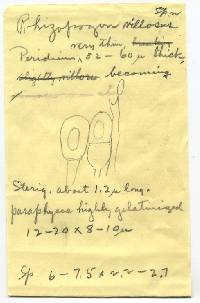 Sp. n
Rhizopogon villosus
very thin,
Peridium, 52-60µ thick,
slightly villose becoming
Sterig. about 1.2µ long.
paraphyses highly gelatinized
12-20 x 8-10µ
Sp. 6-7.5 x 2.2-2.7